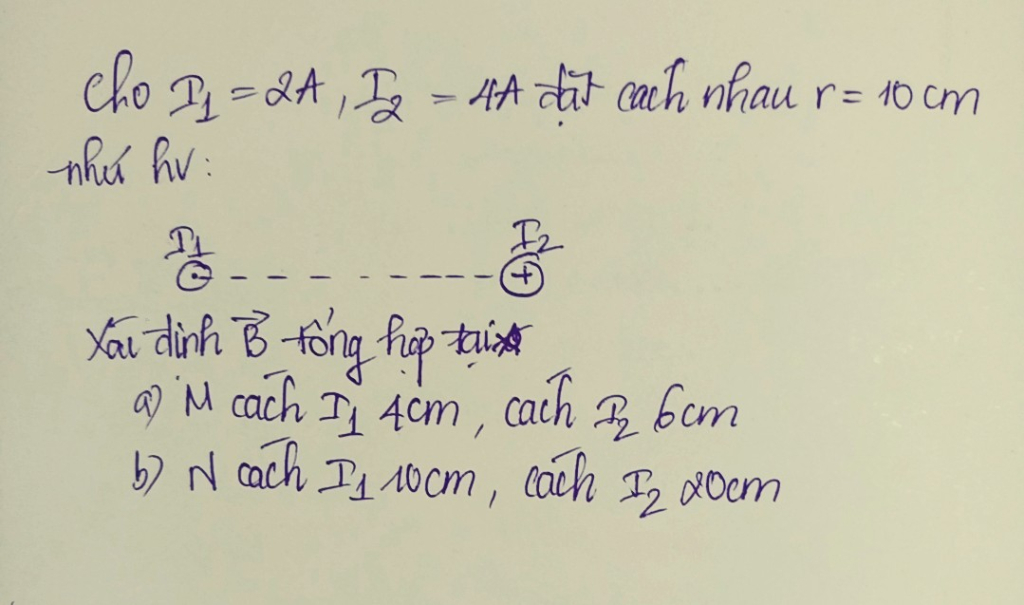 Cho I1 = 2A, I2 = 4A đặt cách nhau r = 10cm
như hv:
I1 I2
Xác định B⃗ tổng hợp tại
a) M cách I1 4cm, cách I2 6cm
b) N cách I1 10cm, cách I2 20cm